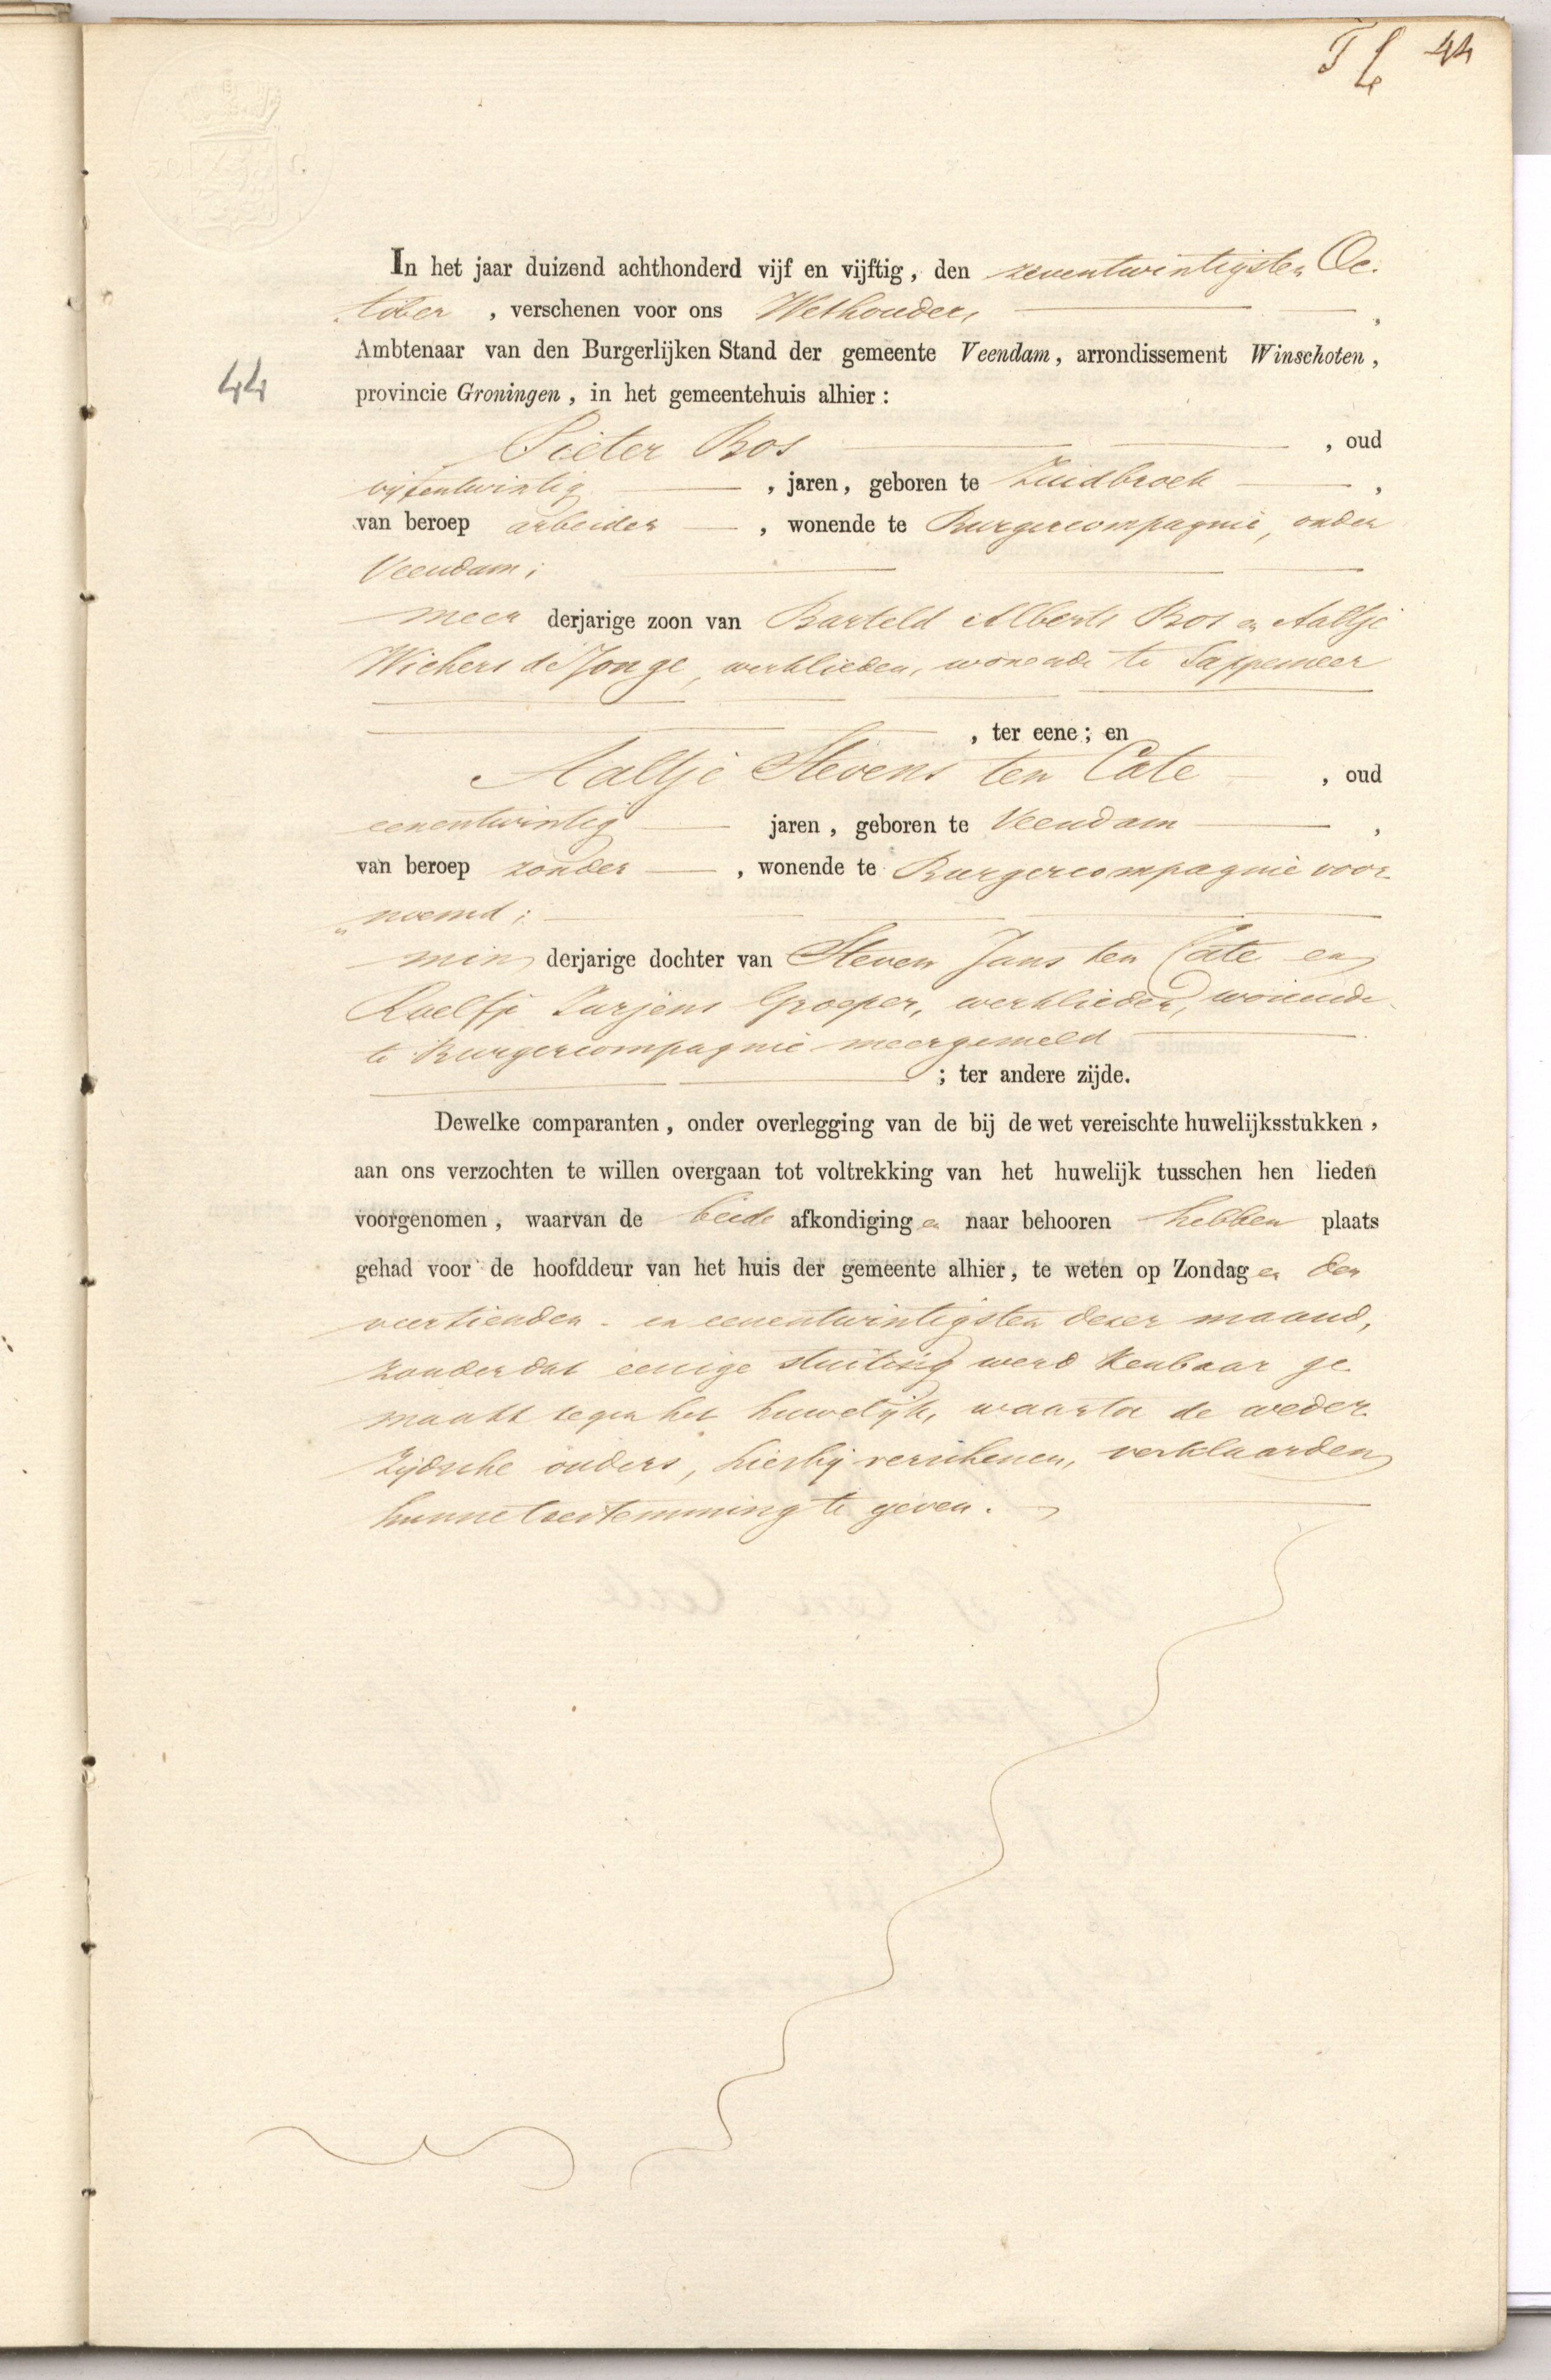 44
In het jaar duizend achthonderd vijf en vijftig, den zeventwintigsten Oc-
tober , verschenen voor ons Wethouder,
Ambtenaar van den Burgerlijken Stand der gemeente Veendam, arrondissement Winschoten,
44
provincie Groningen, in het gemeentehuis alhier:
Pieter Bos , oud
vijfentwintig , jaren, geboren te Zuidbroek ,
van beroep arbeider , wonende te Burgercompagnie, onder
Veendam;
meer derjarige zoon van Barteld Alberts Bos en Aaltje
Wichers de Jonge, werklieden, wonende te Sappemeer
, ter eene; en
Aaltje Stevens ten Cate , oud
eenentwintig jaren, geboren te Veendam ,
van beroep zonder , wonende te Burgercompagnie voor-
„noemd;
min derjarige dochter van Steven Jans ten Cate en
Roelfje Jurjens Groeper, werklieden, wonende
te Burgercompagnie meergemeld
; ter andere zijde.
Dewelke comparanten, onder overlegging van de bij de wet vereischte huwelijksstukken,
aan ons verzochten te willen overgaan tot voltrekking van het huwelijk tusschen hen lieden
voorgenomen, waarvan de beide afkondigingen naar behooren hebben plaats
gehad voor de hoofddeur van het huis der gemeente alhier, te weten op Zondagen den
veertienden - en eenentwintigsten dezer maand,
zonder dat eenige stuiting werd kenbaar ge-
maakt tegen het huwelijk, waartoe de weder-
zijdsche ouders, hierbij verschenen, verklaarden
hunne toestemming te geven.